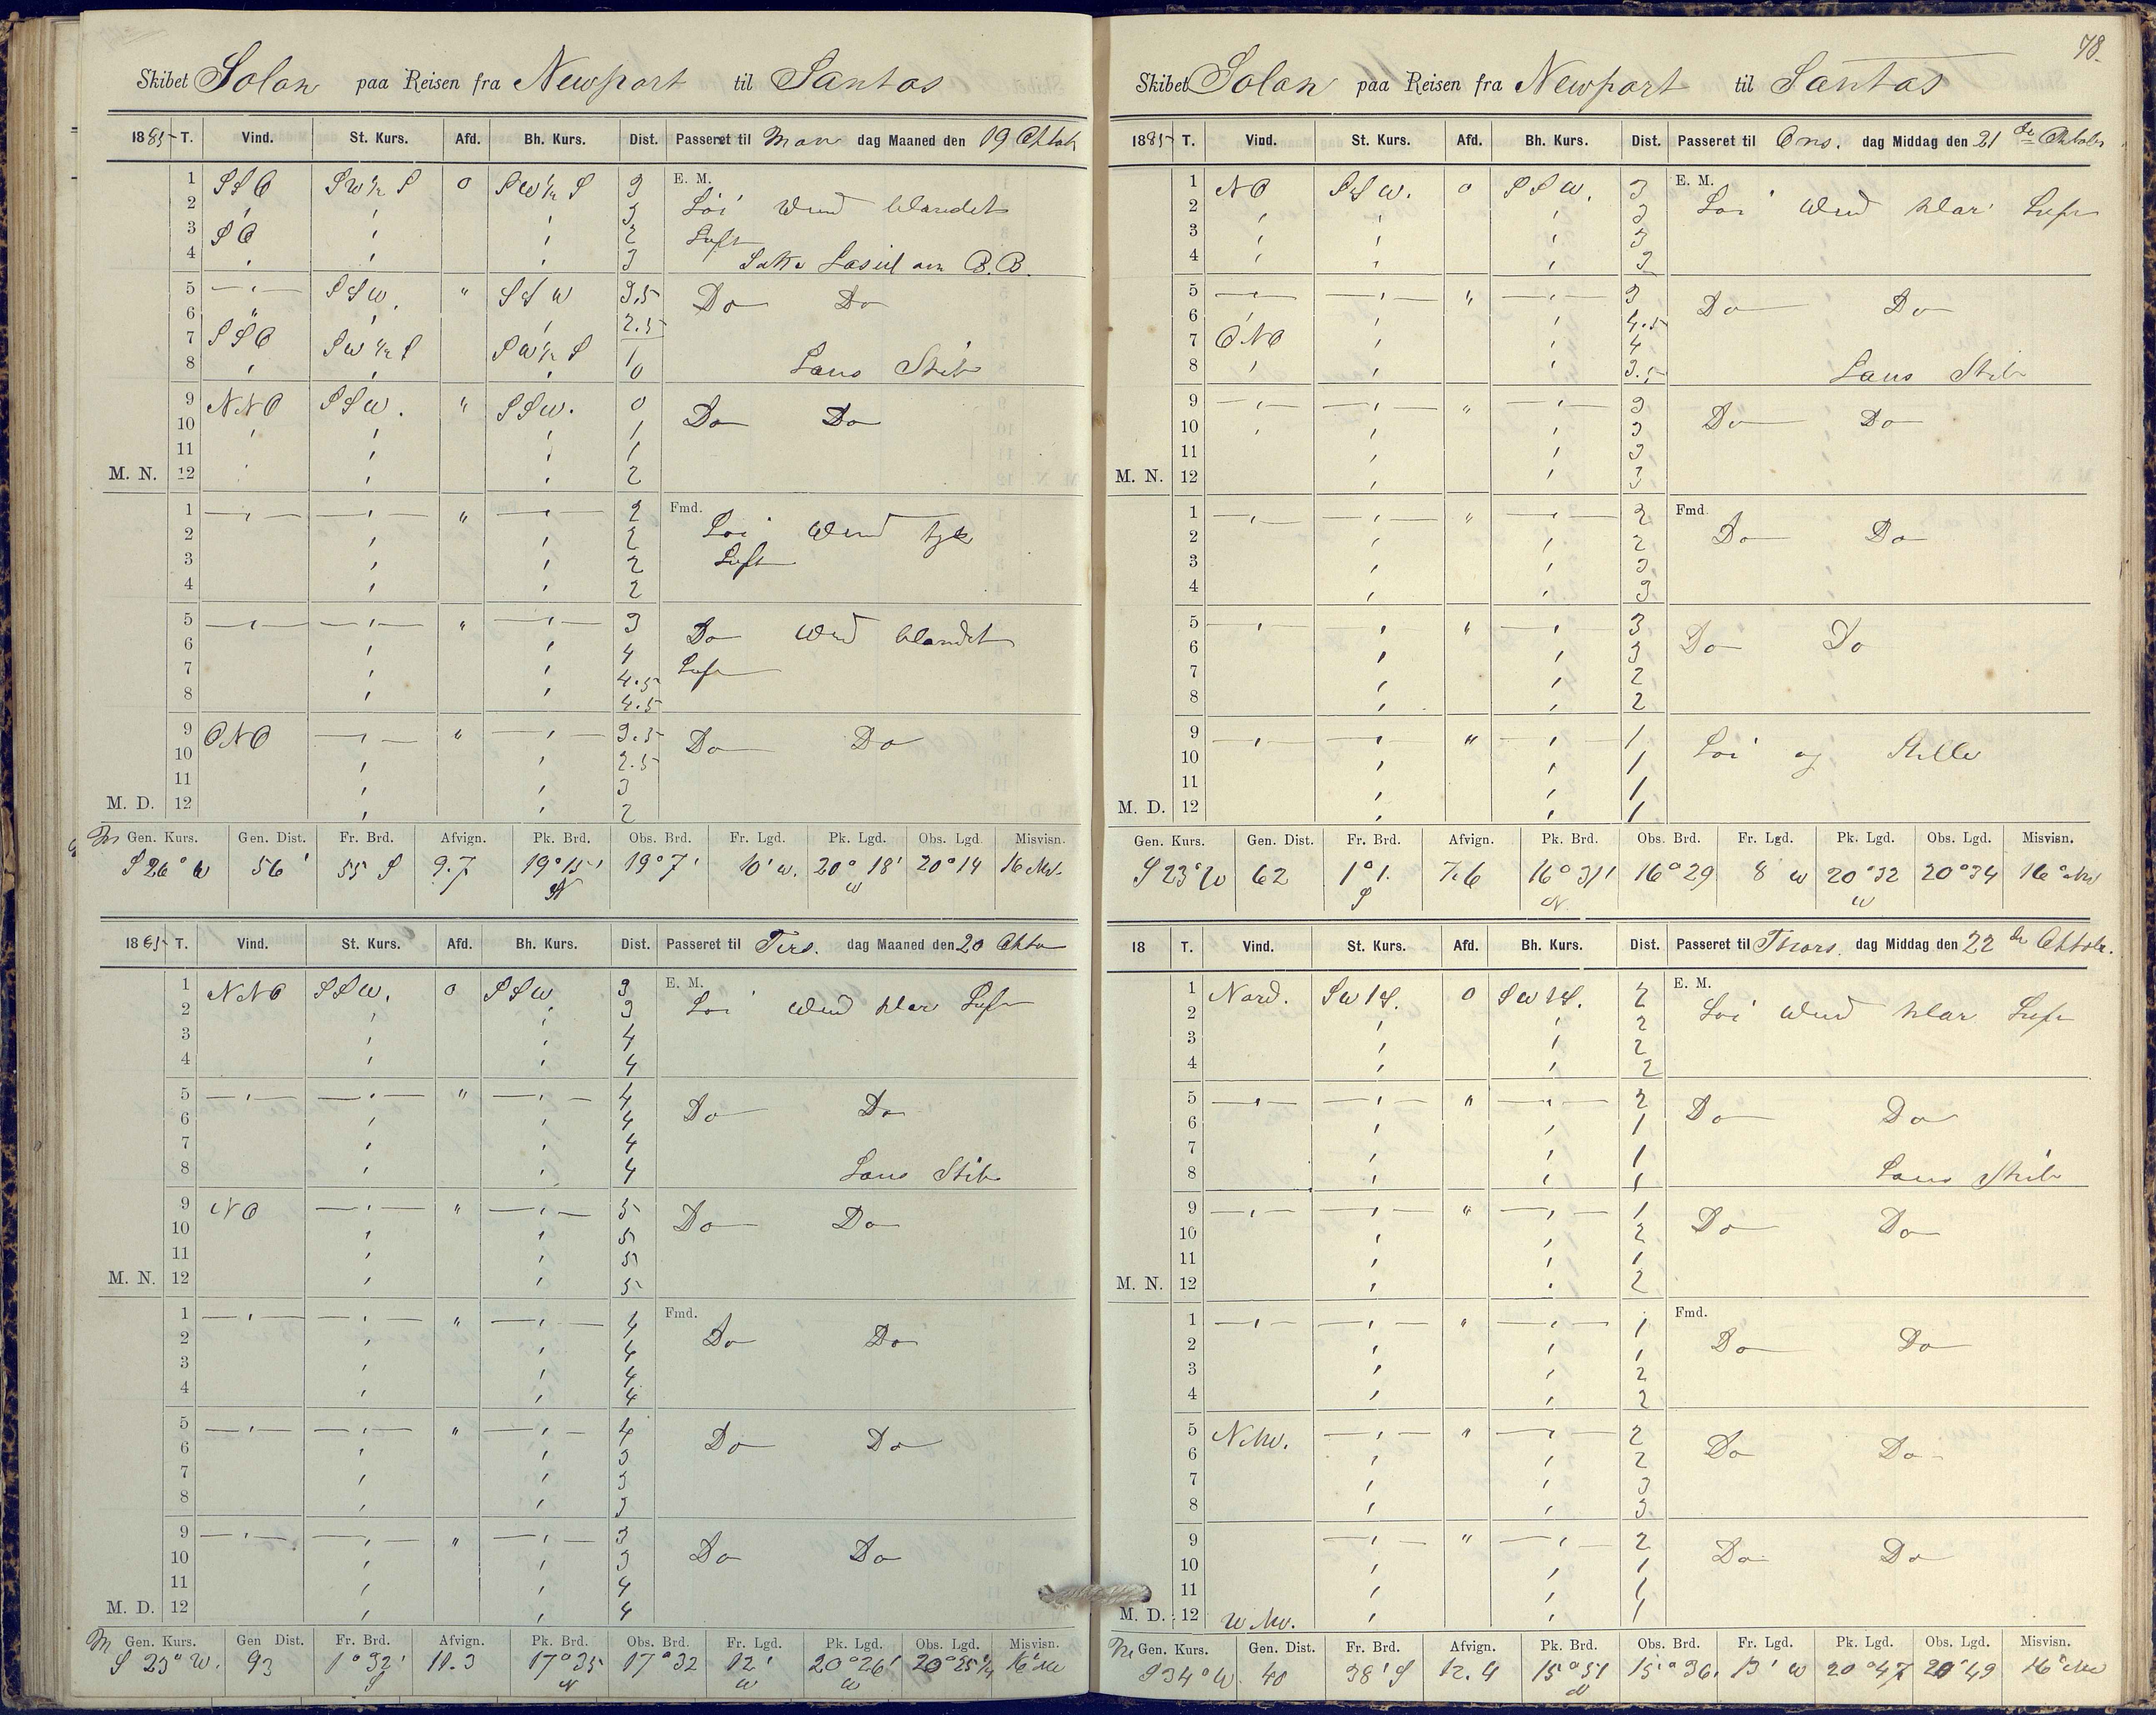 Skibet Solon paa Reisen fra Newport til Santos
1885 T. Vind. St. Kurs. Afd. Bh. Kurs. Dist. Passeret til Man dag Maaned den 19 Oktob
1 SSO SW½S 0 SW½S 3 E. M.
2 , , , 3 Löi Wind blandet
3 SO , , 2 Luft
4 , , , 3 Satte Læseil om B.B.
5 — , — SSW. " SSW 3.5 Do Do
6 " , , 2.5
7 SSO SW½S SW½S 1
8 , , , 0 Lans Skib
9 NNO SSW. " SSW. 0 Do Do
10 , , , 1
11 , , 1
M. N. 12 , , 2
1 — , — — , — " — , — 2 Fmd.
2 , , 2 Löi Wind tyk
3 , , 2 Luft
4 , , 2
5 — , — — , — " — , — 3 Do Wind blandet
6 , , 4 Luft
7 , , 4.5
8 , , 4.5
9 ONO — , — " — , — 3.5 Do Do
10 , , 2.5
11 , , 3
M. D. 12 , , 2
Gen. Kurs. Gen. Dist. Fr. Brd. Afvign. Pk. Brd. Obs. Brd. Fr. Lgd. Pk. Lgd. Obs. Lgd Misvisn.
S 26° W 56' 55 S 9.7 19°15' N 19°7' 10' W. 20°18' W 20°14 16
1885 T. Vind. St. Kurs. Afd. Bh. Kurs. Dist. Passeret til Tirs. dag Maaned den 20 Okto
1 NNO SSW. 0 SSW 3 E. M.
2 , , 3 Löi Wind klar Luft
3 , , 4
4 , , 4
5 — , — — , — " — , — 4 Do Do
6 , , 4
7 , , 4
8 , , 4 Lans Skib
9 NO — , — " — , — 5 Do Do
10 , , 5
11 , , 5
M. N. 12 , , 5
1 — , — — , — " — , — 4 Fmd.
2 , , 4 Do Do
3 , , 4
4 , , 4
5 — , — — , — " — , — 4 Do Do
6 , , 3
7 , , 3
8 , , 3
9 — , — — , — " — , — 3 Do Do
10 , , 3
11 , , 4
M. D. 12 , , 4
Gen. Kurs. Gen Dist. Fr. Brd. Afvign. Pk. Brd. Obs. Brd. Fr. Lgd. Pk. Lgd. Obs. Lgd. Misvisn.
S 23° W. 93 1°32' S 11.3 17°35 N 17°32 12' W 20°26' W 20°25 16°
78.
Skibet Solon paa Reisen fra Newport til Santos
1885 T. Vind. St. Kurs. Afd. Bh. Kurs. Dist. Passeret til Ons. dag Middag den 21 de Oktober
1 NO SSW. 0 SSW. 3 E. M.
2 , , , 3 Löi Wind klar Luft
3 , , , 3
4 , , , 3
5 — — , — " — , — 3 Do Do
6 , , , 4.5
7 ONO , , 4
8 , , , 3.5 Lans Skib
9 — , — — , — " — , — 3 Do Do
10 , , , 3
11 , , 3
M. N. 12 , , 3
1 — , — — , — " — , — 2 Fmd.
2 , , 2 Do Do
3 , , 3
4 , , 3
5 — , — , " — , — 3 Do Do
6 , , 3
7 , , 2
8 , , 2
9 — , — — , — " — , — 1 Löi og Stille
10 , , 1
11 , , 1
M. D. 12 , , 1
Gen. Kurs. Gen. Dist. Fr. Brd. Afvign. Pk. Brd. Obs. Brd. Fr. Lgd. Pk. Lgd. Obs. Lgd. Misvisn.
S 23° W 62 1°1. S 7.6 16°31' N. 16°29 8 W 20°32 W 20°34 16°
18 T. Vind. St. Kurs. Afd. Bh. Kurs. Dist. Passeret til Thors. dag Middag den 22 de Oktob.
1 Nord. SW1S. 0 SW1S. 2 E. M.
2 , , 2 Löi Wind klar Luft
3 , , 2
4 , , 2
5 — , — — , — " — , — 2 Do Do
6 , , 1
7 , , 1
8 , , 1 Lans Skib
9 — , — — , — " — , — 1 Do Do
10 , , 2
11 , , 1
M. N. 12 , , 2
1 — , — — , — " — , — 1 Fmd.
2 , , 1 Do Do
3 , , 2
4 , , 2
5 NNW. — , — " — , — 2 Do Do
6 , , 2
7 , , 3
8 , , 3
9 — , — " — , — 2 Do Do
10 , , 1
11 , , 1
M. D. 12 , , 1
Gen. Kurs. Gen. Dist. Fr. Brd. Afvign. Pk. Brd. Obs. Brd. Fr. Lgd. Pk. Lgd. Obs. Lgd. Misvisn.
S 34° W. 40 38' S 12.4 15°51 N 15°36. 13' W 20°47 20°49 16°